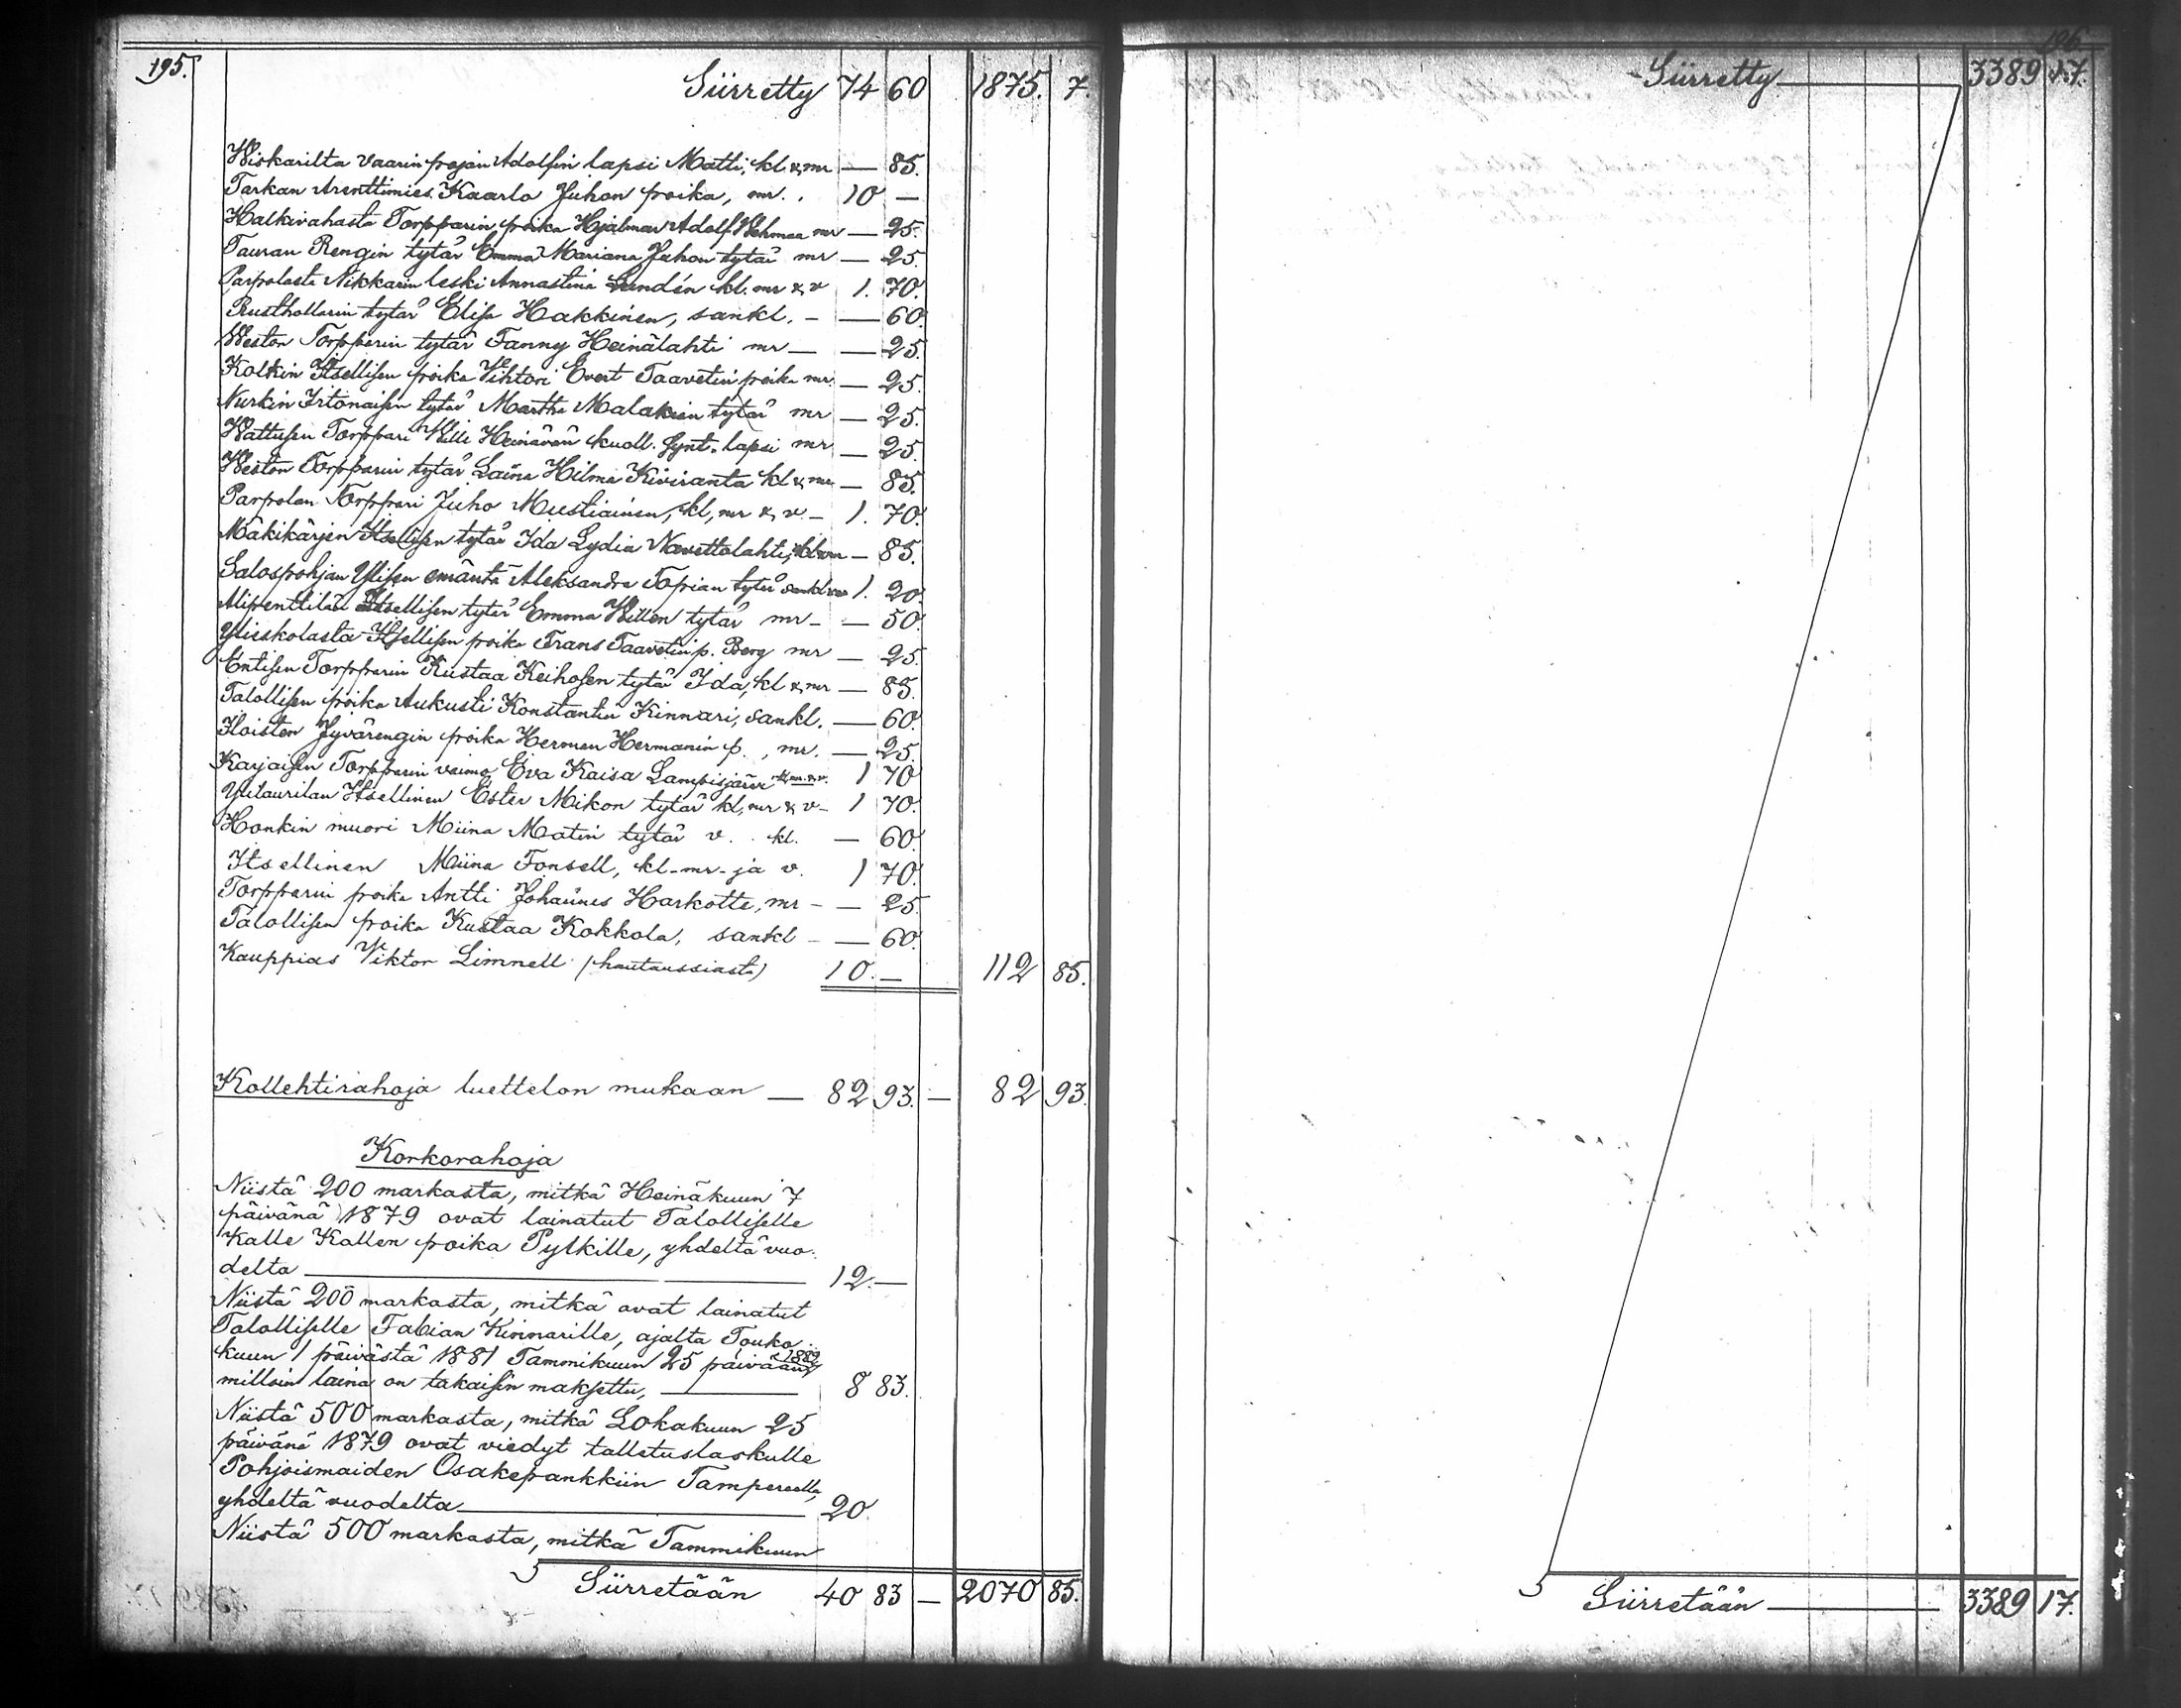 195.
Siirretty 74 60 1875. 7.
Wiskarilta Vaarin pojan Adolfin lapsi Matti, kl & mr — 85.
Tarkan Arenttimies Kaarlo Juhon poika, mr. . 10 —
Halkivahasta Torpparin poika Hjalmar Adolf Wehmaa mr — 25.
Tauran Rengin tytär Emma Mariana Juhon tytär mr — 25.
Parpolasta Nikkarin leski Annastina Lundén kl. mr & v 1. 70.
Rusthollarin tytär Elisa Hakkinen, sankl. — — 60.
Weston Torpparin tytär Fanny Heinälahti mr — — 25.
Kolkin Itsellisen poika Vihtori Evert Taavetin poika mr. — 25.
Nurkin Irtonaisen tytär Martha Malakian tytär mr — 25.
Wattusen Torppari Wille Heinävän kuoll. synt. lapsi mr — 25.
Weston Torpparin tytär Laina Hilma Kiviranta kl & mr — 85.
Parpolan Torppari Juho Mustiainen, kl, mr & v — 1. 70.
Mäkikärjen Itsellisen tytär Ida Lydia Navettalahti, kl & mr — 85.
Salospohjan Ylisen emäntä Aleksandra Topian tytär sankl 1. 20.
Alipenttilän Itsellisen tytär Emma Willen tytär mr — — 50.
Ylieskolasta Itsellisen poika Frans Taavetin p. Berg mr — 25.
Entisen Torpparin Kustaa Keihosen tytär Ida, kl & mr — 85.
Talollisen poika Aukusti Konstantin Kinnari, sankl. — 60.
Iloisten Jyvärengin poika Herman Hermanin p., mr. — 25.
Karjaisen Torpparin vaimo Eva Kaisa Lampisjärvi kl. mr. & v. 1 70
Ylilaurilan Itsellinen Ester Mikon tytär kl, mr & v — 1 70.
Honkin muori Miina Matin tytär v. . kl. — 60.
Itsellinen Miina Fonsell, kl - mr - ja v. 1 70.
Torpparin poika Antti Johannes Harkotte, mr — — 25.
Talollisen poika Kustaa Kokkola, sankl — — 60.
Kauppias Viktor Limnell (hautaussiasta) 10. — 112 85.
Kollehtirahoja luettelon mukaan — 82 93. — 82 93.
Korkorahoja
Niistä 200 markasta, mitkä Heinäkuun 7
päivänä 1879 ovat lainatut Talolliselle
Kalle Kallen poika Pylkille, yhdeltä vuo-
delta — 12. —
Niistä 200 markasta, mitkä ovat lainatut
Talolliselle Fabian Kinnarille, ajalta Touko-
kuun 1 päivästä 1881 Tammikuun 25 päivään 1882
milloin laina on takaisin maksettu, — 8 83.
Niistä 500 markasta, mitkä Lokakuun 25
päivänä 1879 ovat viedyt talletuslaskulle
Pohjoismaiden Osakepankkiin Tampereella,
yhdeltä vuodelta — 20.
Niistä 500 markasta, mitkä Tammikuun
Siirretään 40 83 — 2070 85.
196.
Siirretty — 3389 17.
Siirretään — 3389 17.